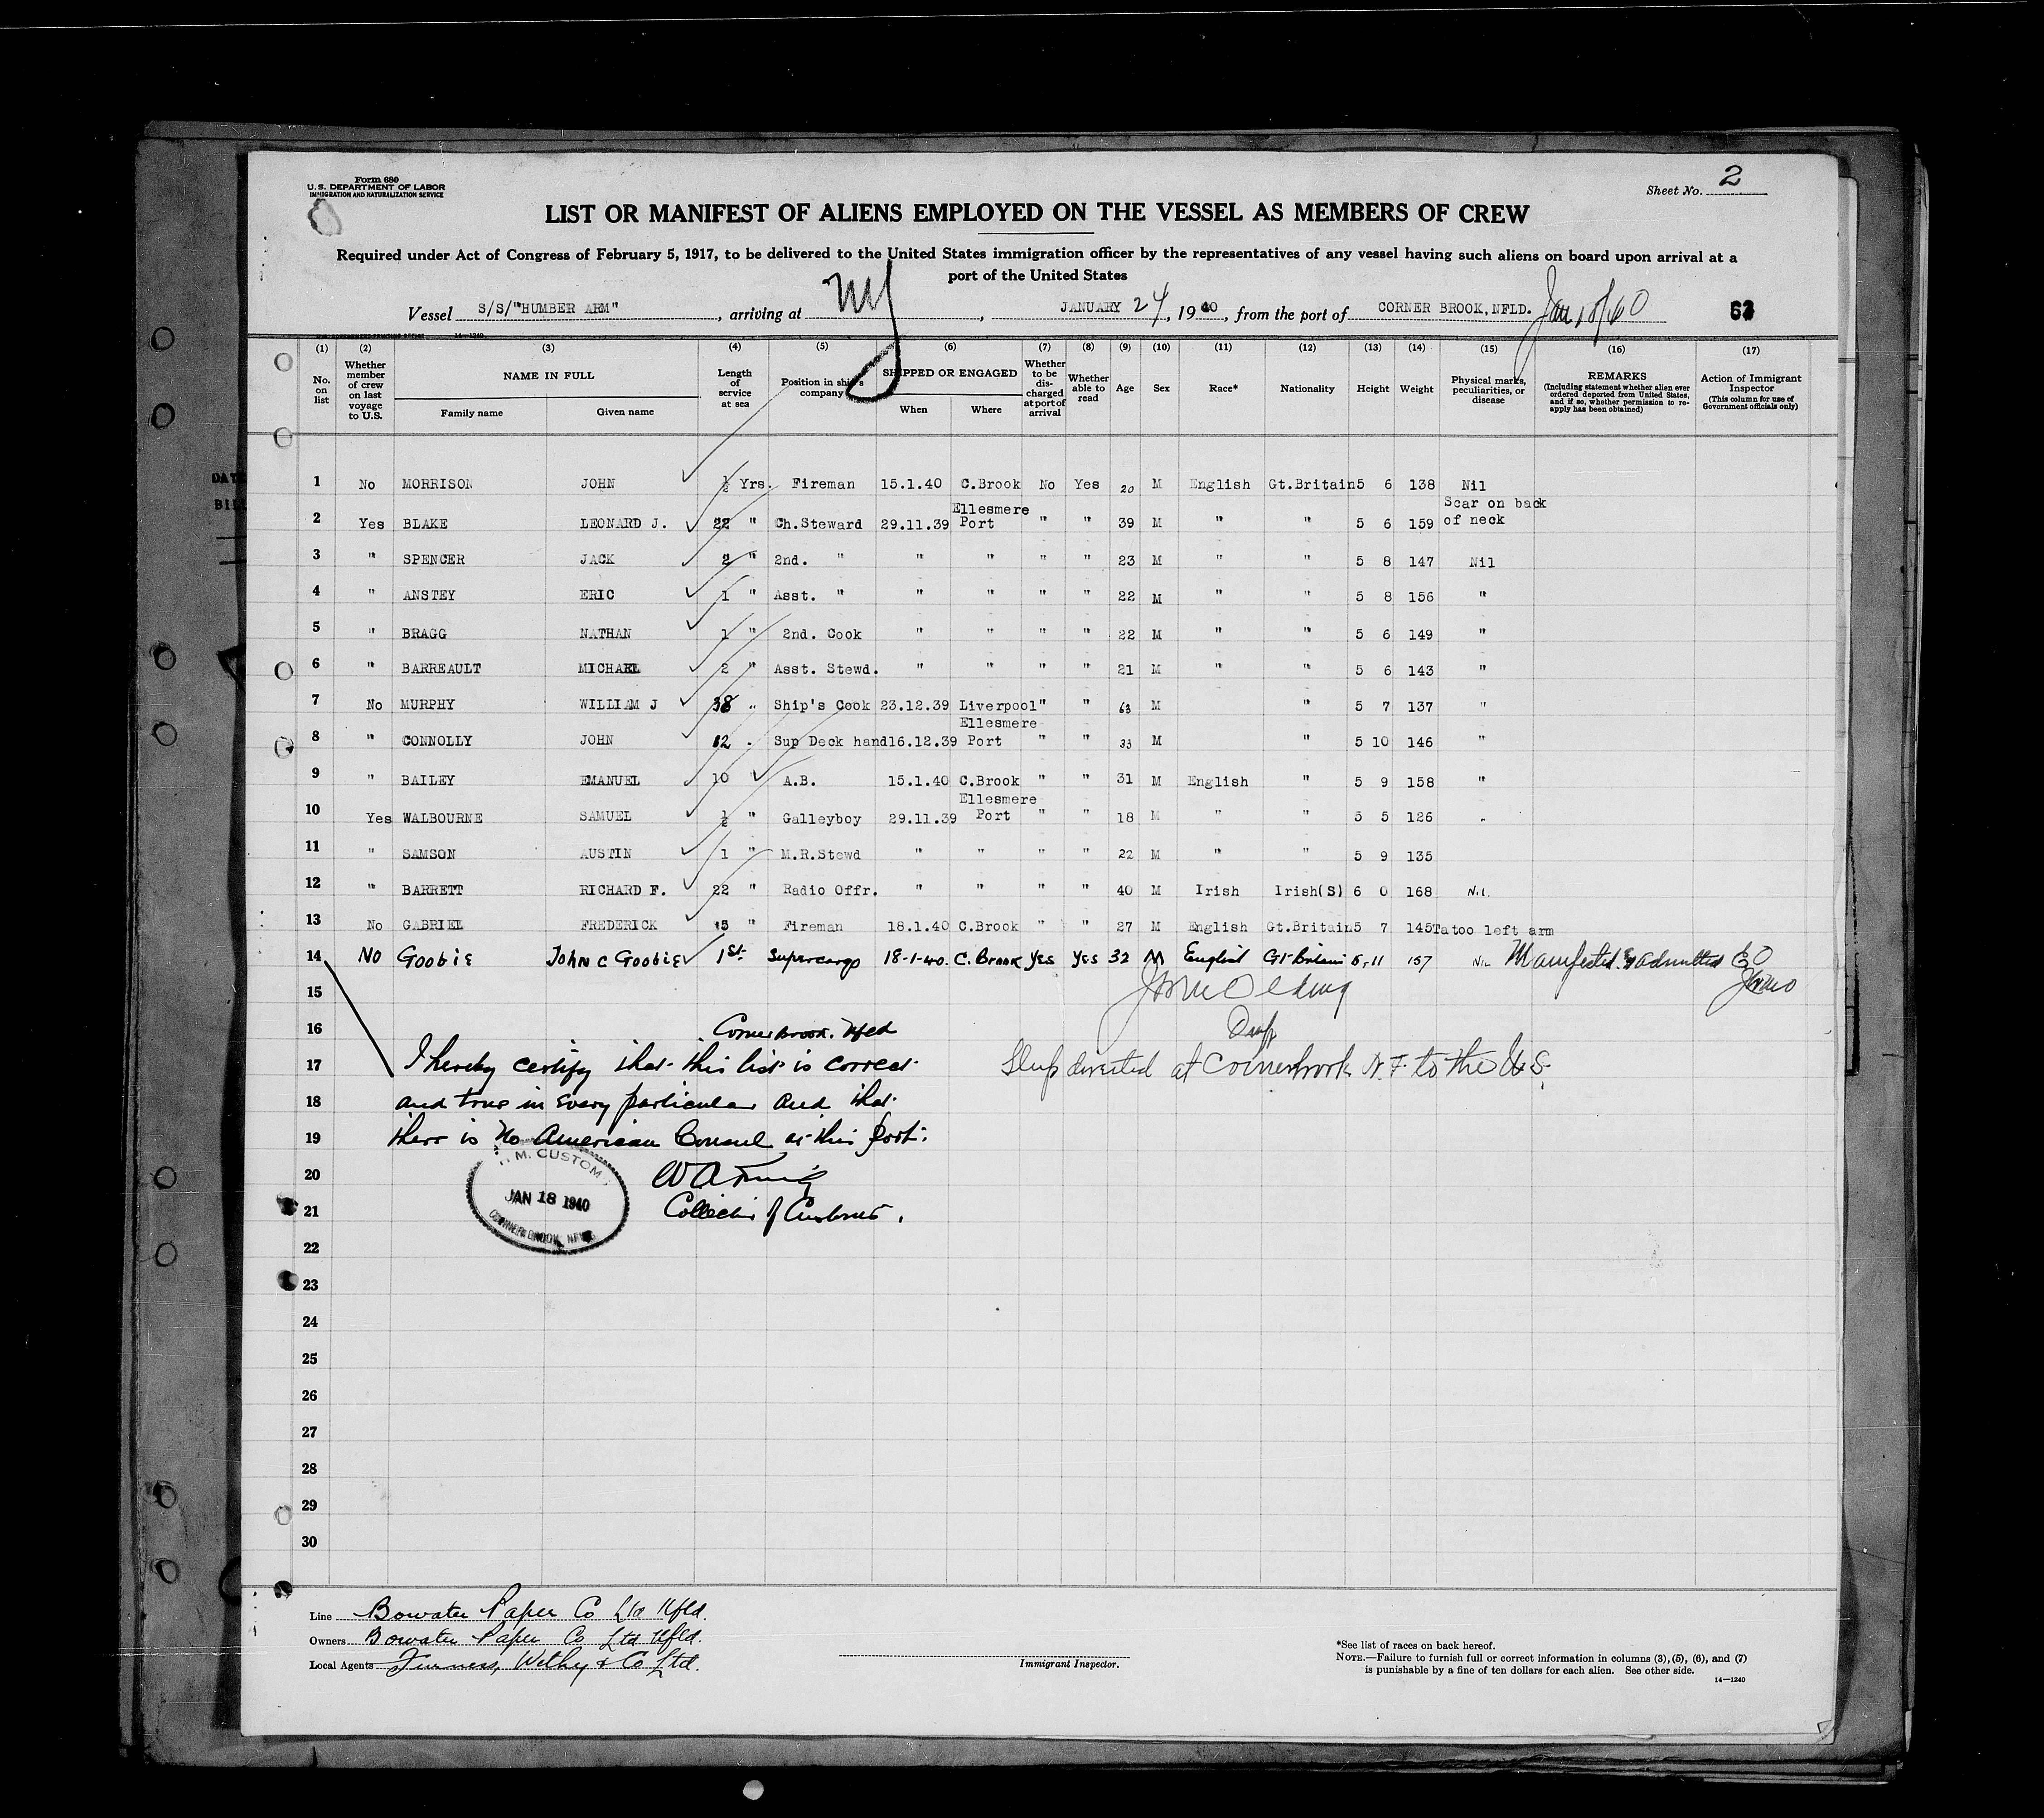 Form 680
U.S. DEPARTMENT OF LABOR
IMMIGRATION AND NATURALIZATION SERVICE
Sheet No. 2
LIST OR MANIFEST OF ALIENS EMPLOYED ON THE VESSEL AS MEMBERS OF CREW
Required under Act of Congress of February 5, 1917, to be delivered to the United States immigration officer by the representatives of any vessel having such aliens on board upon arrival at a
port of the United States
Vessel S/S/"HUMBER ARM", arriving at NY, JANUARY 24, 1940, from the port of CORNER BROOK, NFLD. Jan 18/40
14—1240
(1) (2) (3) (4) (5) (6) (7) (8) (9) (10) (11) (12) (13) (14) (15) (16) (17)
No. on list
Whether member of crew on last voyage to U.S.
NAME IN FULL
Family name
Given name
Length of service at sea
Position in ship's company
SHIPPED OR ENGAGED
When
Where
Whether to be discharged at port of arrival
Whether able to read
Age
Sex
Race*
Nationality
Height
Weight
Physical marks, peculiarities, or disease
REMARKS
(Including statement whether alien ever ordered deported from United States, and if so, whether permission to re-apply has been obtained)
Action of Immigrant Inspector
(This column for use of Government officials only)
1 No MORRISON JOHN ½ Yrs. Fireman 15.1.40 C.Brook No Yes 20 M English Gt.Britain 5 6 138 Nil
2 Yes BLAKE LEONARD J. 22 " Ch.Steward 29.11.39 Ellesmere Port " " 39 M " " 5 6 159 Scar on back of neck
3 " SPENCER JACK 2 " 2nd. " " " " " 23 M " " 5 8 147 Nil
4 " ANSTEY ERIC 1 " Asst. " " " " " 22 M " " 5 8 156 "
5 " BRAGG NATHAN 1 " 2nd. Cook " " " " 22 M " " 5 6 149 "
6 " BARREAULT MICHAEL 2 " Asst. Stewd. " " " " 21 M " " 5 6 143 "
7 No MURPHY WILLIAM J 38 " Ship's Cook 23.12.39 Liverpool " " 63 M " 5 7 137 "
8 " CONNOLLY JOHN 12 " Sup Deck hand 16.12.39 Ellesmere Port " " 33 M " 5 10 146 "
9 " BAILEY EMANUEL 10 " A.B. 15.1.40 C.Brook " " 31 M English " 5 9 158 "
10 Yes WALBOURNE SAMUEL ½ " Galleyboy 29.11.39 Ellesmere Port " " 18 M " " 5 5 126 "
11 " SAMSON AUSTIN 1 " M.R.Stewd " " " " 22 M " " 5 9 135
12 " BARRETT RICHARD F. 22 " Radio Offr. " " " " 40 M Irish Irish(S) 6 0 168 Nil.
13 No GABRIEL FREDERICK 5 " Fireman 18.1.40 C.Brook " " 27 M English Gt.Britain 5 7 145 Tatoo left arm
14 No Goobie John C Goobie 1st. Supercargo 18-1-40. C.Brook Yes Yes 32 M English Gt-Britain 5,11 157 Nil Manifested & admitted
15
16 Corner Brook. Nfld
17 I hereby certify that this list is correct
Ship directed at Cornerbrook N.F. to the U.S.
18 and true in every particular and that
19 there is no American Consul at this port.
20
21 Collector of Customs.
H.M. CUSTOMS
JAN 18 1940
CORNER BROOK, NFLD
22
23
24
25
26
27
28
29
30
Line Bowater Paper Co Ltd Nfld.
Owners Bowater Paper Co Ltd Nfld.
Local Agents Furness, Withy & Co Ltd.
Immigrant Inspector.
*See list of races on back hereof.
NOTE.—Failure to furnish full or correct information in columns (3), (5), (6), and (7)
is punishable by a fine of ten dollars for each alien. See other side.
14—1240